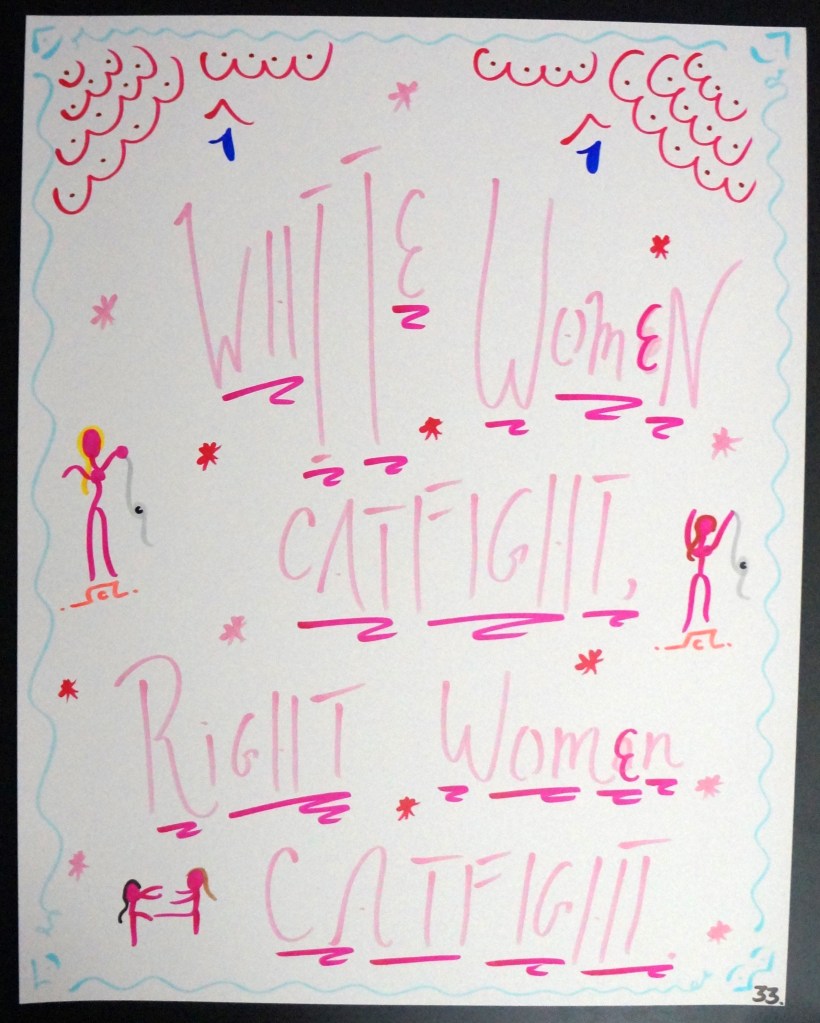 WHITE WOmEN
CATFIGHT,
RiGHT WOmEn
CATFIGHT.
33.